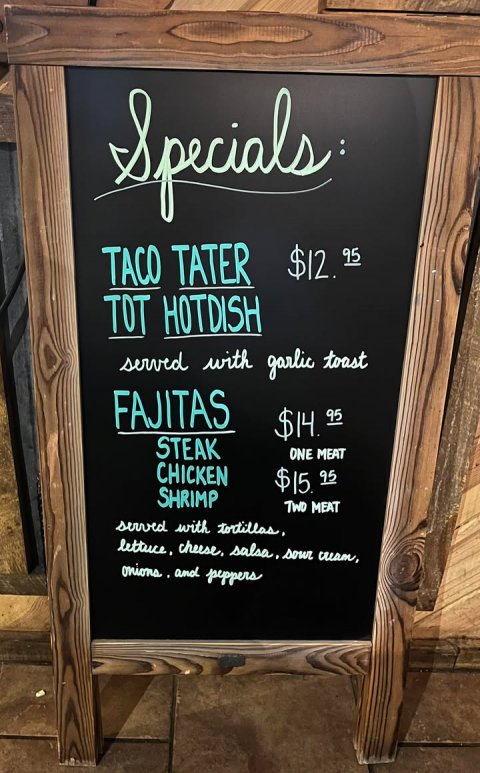 Specials:
TACO TATER $12.95
TOT HOTDISH
served with garlic toast
FAJITAS $14.95
STEAK ONE MEAT
CHICKEN $15.95
SHRIMP TWO MEAT
served with tortillas,
lettuce, cheese, salsa, sour cream,
onions, and peppers